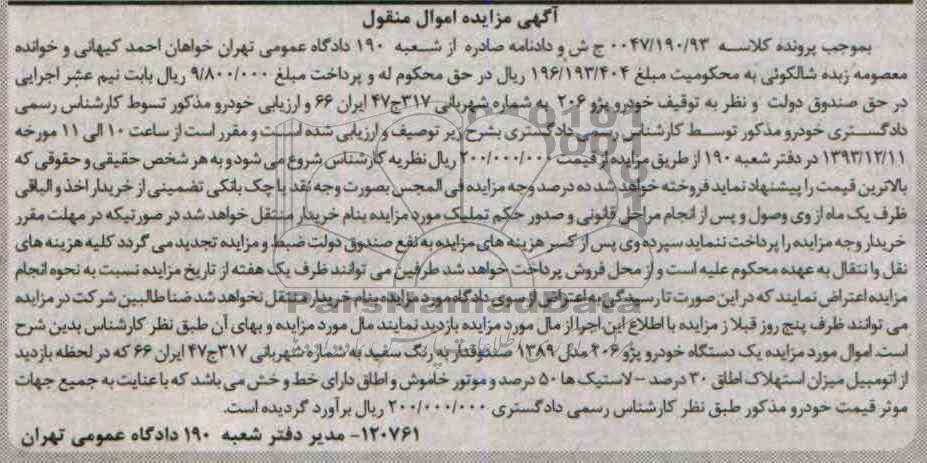 آگهی مزایده اموال منقول
بموجب پرونده کلاسه ۰۰۴۷/۱۹۰/۹۳ ج ش و دادنامه صادره از شعبه ۱۹۰ دادگاه عمومی تهران خواهان احمد کیهانی و خوانده
معصومه زبده شالکوئی به محکومیت مبلغ ۱۹۶/۱۹۳/۴۰۴ ریال در حق محکوم له و پرداخت مبلغ ۹/۸۰۰/۰۰۰ ریال بابت نیم عشر اجرایی
در حق صندوق دولت و نظر به توقیف خودرو پژو ۲۰۶ به شماره شهربانی ۳۱۷ج۴۷ ایران ۶۶ و ارزیابی خودرو مذکور توسط کارشناس رسمی
دادگستری خودرو مذکور توسط کارشناس رسمی دادگستری بشرح زیر توصیف و ارزیابی شده است و مقرر است از ساعت ۱۰ الی ۱۱ مورخه
۱۳۹۳/۱۲/۱۱ در دفتر شعبه ۱۹۰ از طریق مزایده از قیمت ۲۰۰/۰۰۰/۰۰۰ ریال نظریه کارشناس شروع می شود و به هر شخص حقیقی و حقوقی که
بالاترین قیمت را پیشنهاد نماید فروخته خواهد شد ده درصد وجه مزایده فی المجس بصورت وجه نقد یا چک بانکی تضمینی از خریدار اخذ و الباقی
ظرف یک ماه از وی وصول و پس از انجام مراحل قانونی و صدور حکم تملیک مورد مزایده بنام خریدار منتقل خواهد شد در صورتیکه در مهلت مقرر
خریدار وجه مزایده را پرداخت ننماید سپرده وی پس از کسر هزینه های مزایده به نفع صندوق دولت ضبط و مزایده تجدید می گردد کلیه هزینه های
نقل و انتقال به عهده محکوم علیه است و از محل فروش پرداخت خواهد شد طرفین می توانند ظرف یک هفته از تاریخ مزایده نسبت به نحوه انجام
مزایده اعتراض نمایند که در این صورت تا رسیدگی به اعتراض از سوی دادگاه مورد مزایده بنام خریدار منتقل نخواهد شد ضنا طالبین شرکت در مزایده
می توانند ظرف پنج روز قبلا ز مزایده با اطلاع این اجرا از مال مورد مزایده بازدید نمایند مال مورد مزایده و بهای آن طبق نظر کارشناس بدین شرح
است. اموال مورد مزایده یک دستگاه خودرو پژو ۲۰۶ مدل ۱۳۸۹ صندوقدار به رنگ سفید به شماره شهربانی ۳۱۷ج۴۷ ایران ۶۶ که در لحظه بازدید
از اتومبیل میزان استهلاک اطاق ۳۰ درصد - لاستیک ها ۵۰ درصد و موتور خاموش و اطاق دارای خط و خش می باشد که با عنایت به جمیع جهات
موثر قیمت خودرو مذکور طبق نظر کارشناس رسمی دادگستری ۲۰۰/۰۰۰/۰۰۰ ریال برآورد گردیده است.
۱۲۰۷۶۱- مدیر دفتر شعبه ۱۹۰ دادگاه عمومی تهران
ParsNamadData